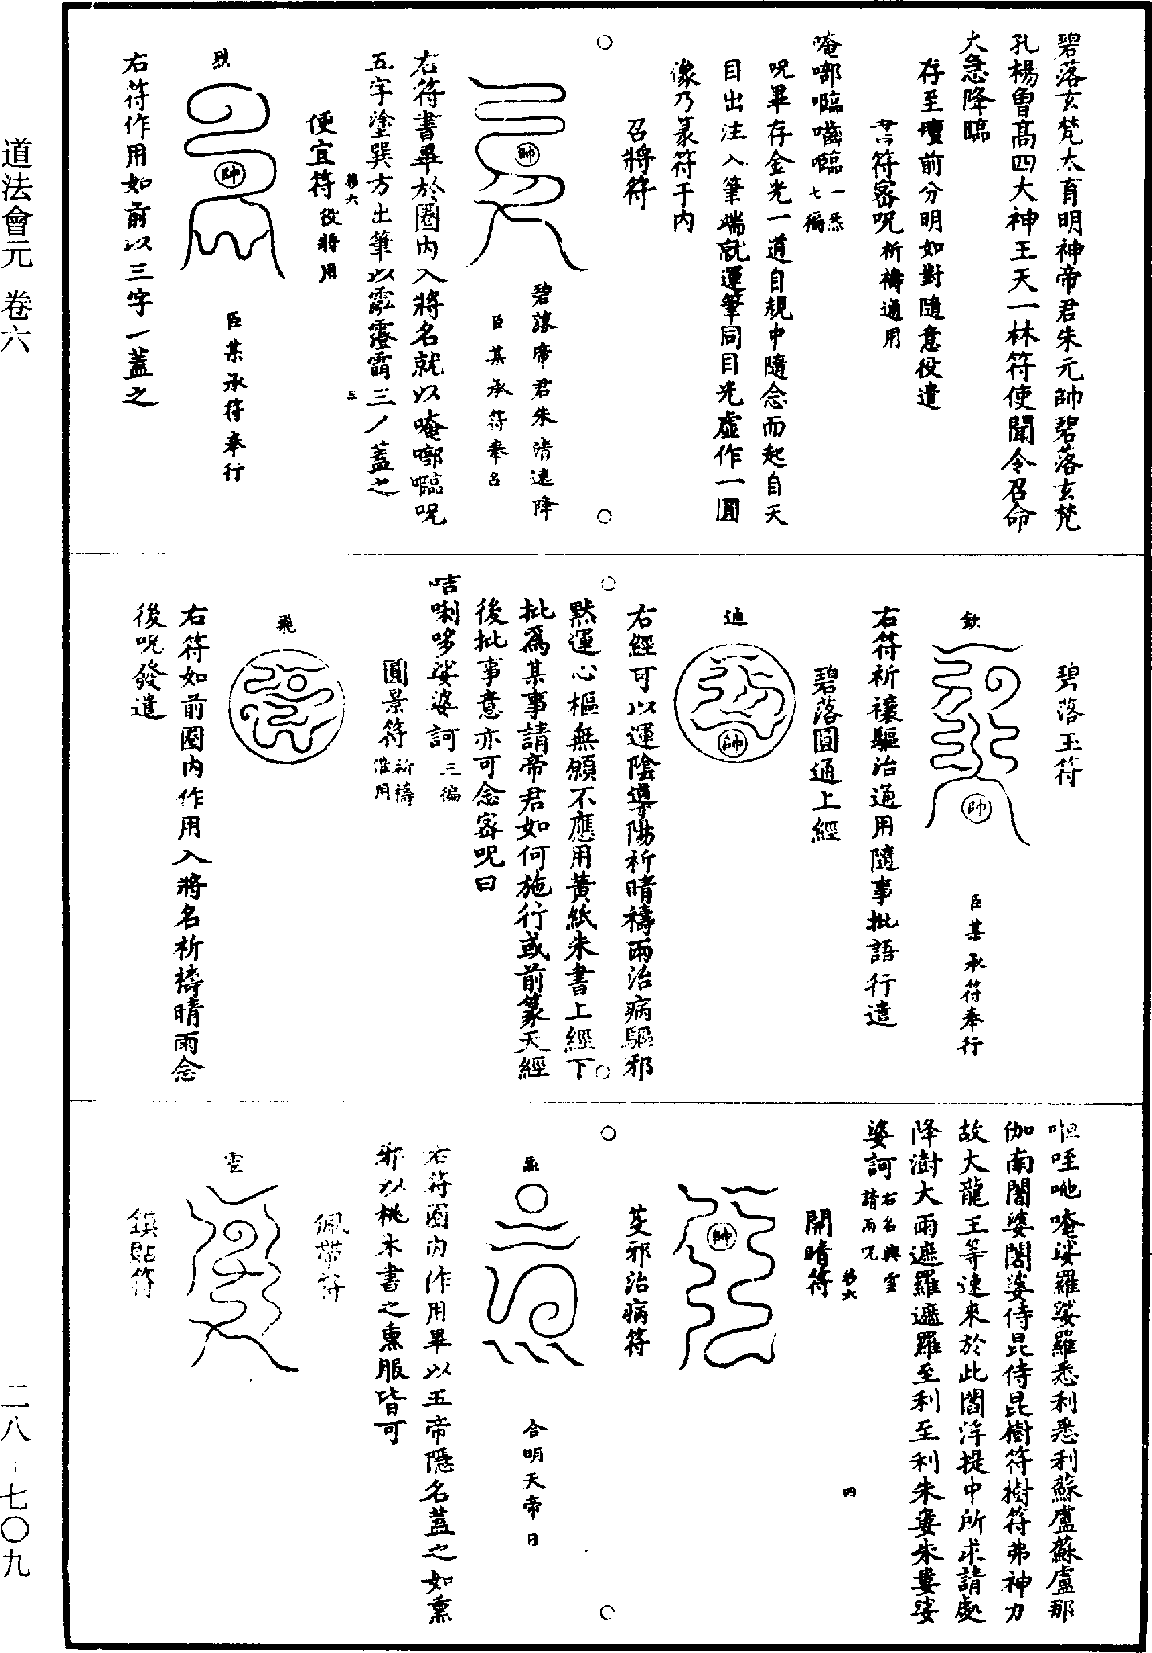 碧落玄梵太育明神帝君朱元帥碧落玄梵
孔楊曾高四大神王天一林符使聞令召命
大急降臨
存至壇前分明如對隨意役遣
書符密呪祈禱通用
唵啣𠾱嚙𠾱一炁七徧
呪畢存金光一道自規中隨念而起自天
目出注入筆端就運筆同目光虛作一圓
像乃篆符于內
召將符
帥
碧潒帝君朱清速降
臣某承符奉召
右符書畢於圈內入將名就以唵啣𠾱呪
五字塗巽方出筆以霐靈霄三ノ蓋之
卷六
三
便宜符役將用
烈
帥
臣某承符奉行
右符作用如前以三字一蓋之
碧落玉符
欽
帥
臣某承符奉行
右符祈禳驅治通用隨事批語行遣
碧落圓通上經
迪
帥
右經可以運陰導陽祈晴禱雨治病驅邪
默運心樞無願不應用黃紙朱書上經下
批為某事請帝君如何施行或前篆天經
後批事意亦可念密呪曰
咭唎哆娑婆訶三徧
圓景符祈禱準用
飛
右符如前圈內作用入將名祈禱晴雨念
後呪發遣
呾咥吔唵娑羅娑羅悉利悉利蘇盧蘇盧那
伽南闍婆闍婆侍昆侍昆樹符樹符弗神力
故大龍王等速來於此閻浮提中所求請處
降澍大雨遮羅遮羅至利至利朱婁朱婁娑
婆訶右名興雲請雨呪
卷六
四
開晴符
帥
芟邪治病符
合明天帝日
右符圈內作用畢以五帝隱名蓋之如熏
邪以桃木書之熏服皆可
佩帶符
雲
鎮貼符
道法會元 卷六
二八-七〇九